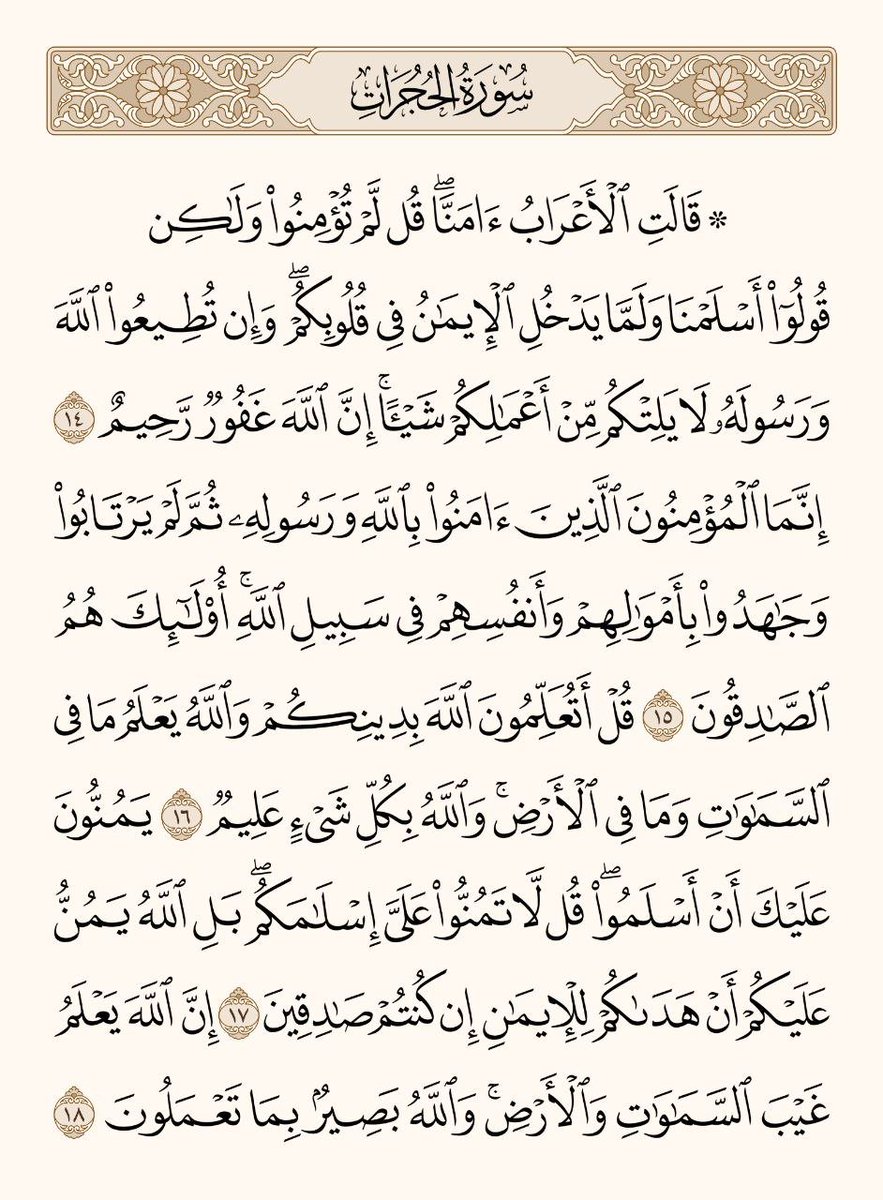 سُورَةُ الحُجُرَاتِ
* قَالَتِ ٱلْأَعْرَابُ ءَامَنَّاۖ قُل لَّمْ تُؤْمِنُوا۟ وَلَٰكِن
قُولُوٓا۟ أَسْلَمْنَا وَلَمَّا يَدْخُلِ ٱلْإِيمَٰنُ فِى قُلُوبِكُمْۖ وَإِن تُطِيعُوا۟ ٱللَّهَ
وَرَسُولَهُۥ لَا يَلِتْكُم مِّنْ أَعْمَٰلِكُمْ شَيْـًٔاۚ إِنَّ ٱللَّهَ غَفُورٌ رَّحِيمٌ ١٤
إِنَّمَا ٱلْمُؤْمِنُونَ ٱلَّذِينَ ءَامَنُوا۟ بِٱللَّهِ وَرَسُولِهِۦ ثُمَّ لَمْ يَرْتَابُوا۟
وَجَٰهَدُوا۟ بِأَمْوَٰلِهِمْ وَأَنفُسِهِمْ فِى سَبِيلِ ٱللَّهِۚ أُو۟لَٰٓئِكَ هُمُ
ٱلصَّٰدِقُونَ ١٥ قُلْ أَتُعَلِّمُونَ ٱللَّهَ بِدِينِكُمْ وَٱللَّهُ يَعْلَمُ مَا فِى
ٱلسَّمَٰوَٰتِ وَمَا فِى ٱلْأَرْضِۚ وَٱللَّهُ بِكُلِّ شَىْءٍ عَلِيمٌ ١٦ يَمُنُّونَ
عَلَيْكَ أَنْ أَسْلَمُوا۟ۖ قُل لَّا تَمُنُّوا۟ عَلَىَّ إِسْلَٰمَكُمۖ بَلِ ٱللَّهُ يَمُنُّ
عَلَيْكُمْ أَنْ هَدَىٰكُمْ لِلْإِيمَٰنِ إِن كُنتُمْ صَٰدِقِينَ ١٧ إِنَّ ٱللَّهَ يَعْلَمُ
غَيْبَ ٱلسَّمَٰوَٰتِ وَٱلْأَرْضِۚ وَٱللَّهُ بَصِيرٌۢ بِمَا تَعْمَلُونَ ١٨